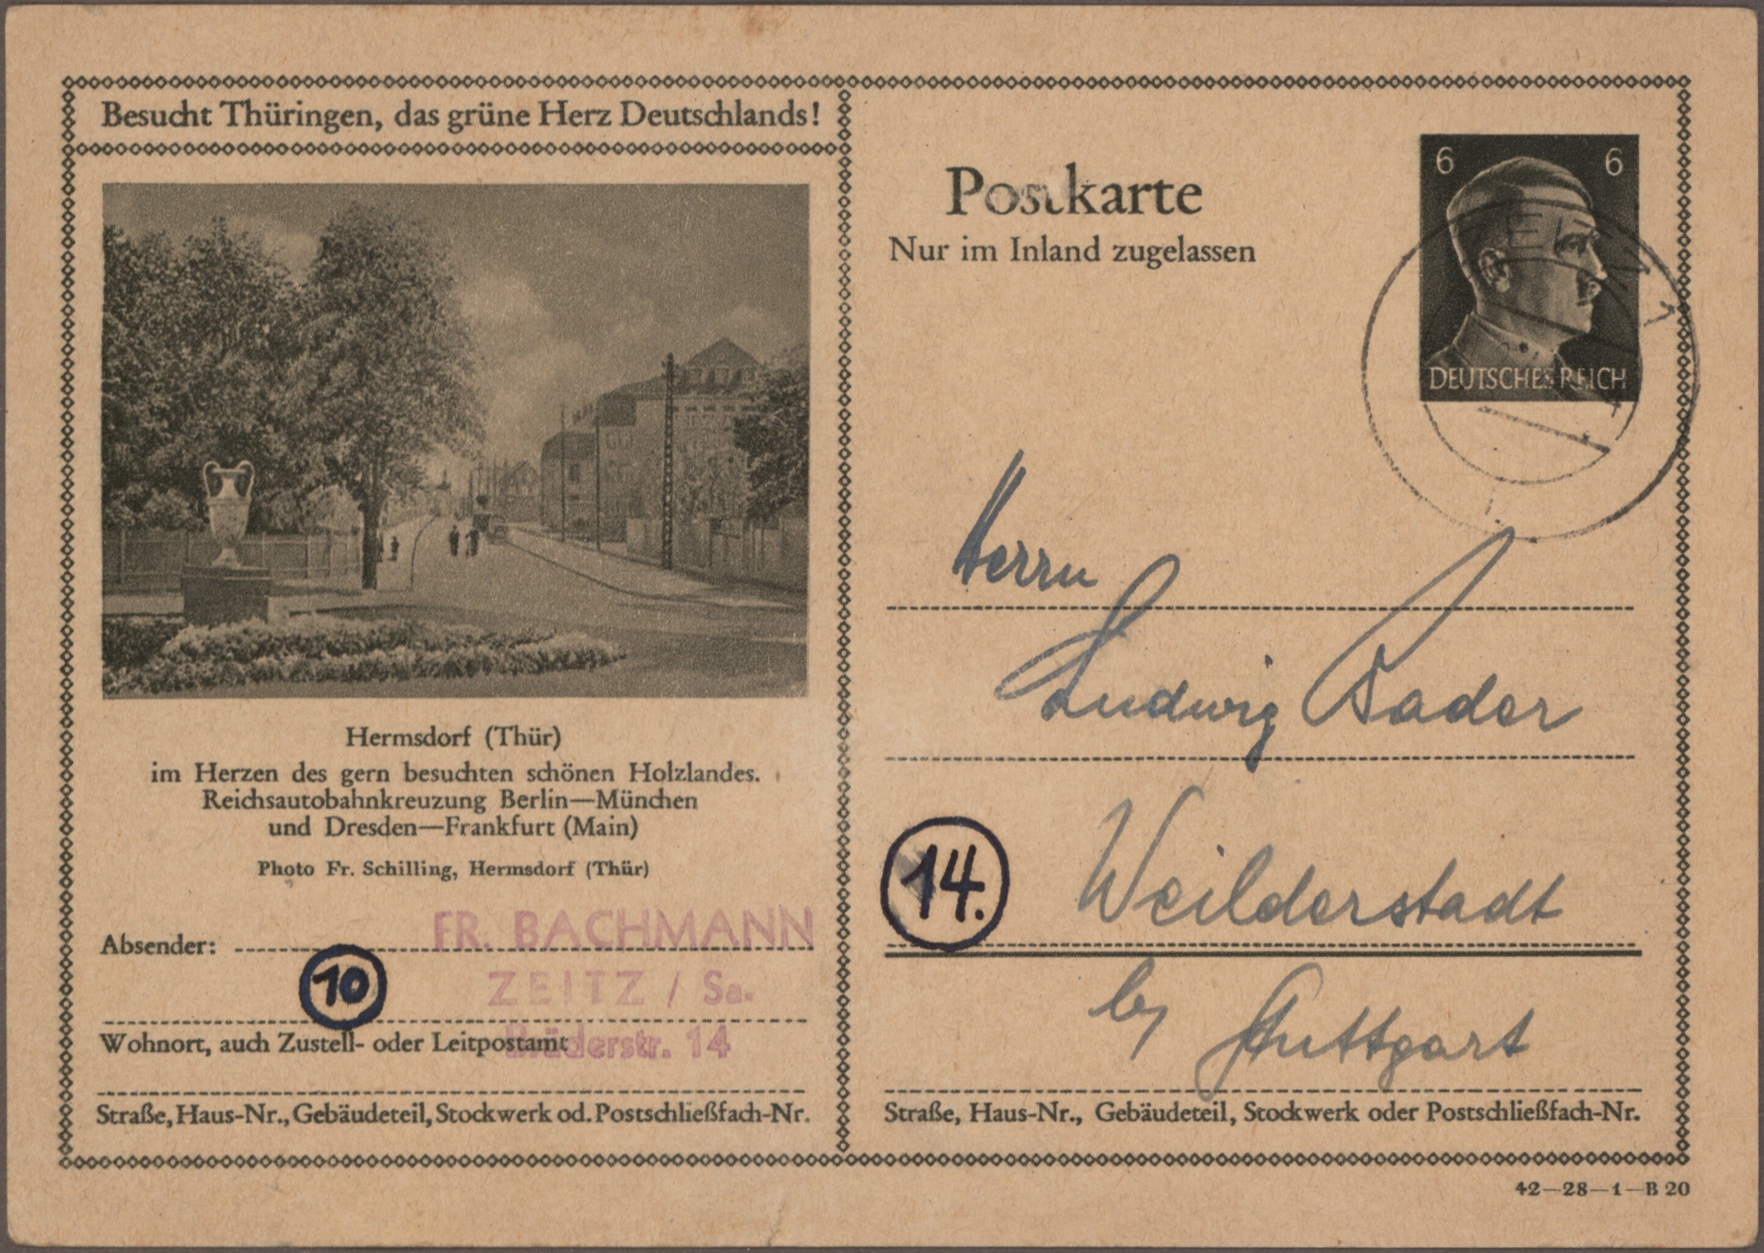 Besucht Thüringen, das grüne Herz Deutschlands!
Hermsdorf (Thür)
im Herzen des gern besuchten schönen Holzlandes.
Reichsautobahnkreuzung Berlin—München
und Dresden—Frankfurt (Main)
Photo Fr. Schilling, Hermsdorf (Thür)
Absender:
FR. BACHMANN
10
ZEITZ / Sa.
Brüderstr. 14
Wohnort, auch Zustell- oder Leitpostamt
Straße, Haus-Nr., Gebäudeteil, Stockwerk od. Postschließfach-Nr.
Postkarte
Nur im Inland zugelassen
6 6
DEUTSCHES REICH
Herrn
Ludwig Bader
14. Weilderstadt
by Stuttgart
Straße, Haus-Nr., Gebäudeteil, Stockwerk oder Postschließfach-Nr.
42—28—1—B 20